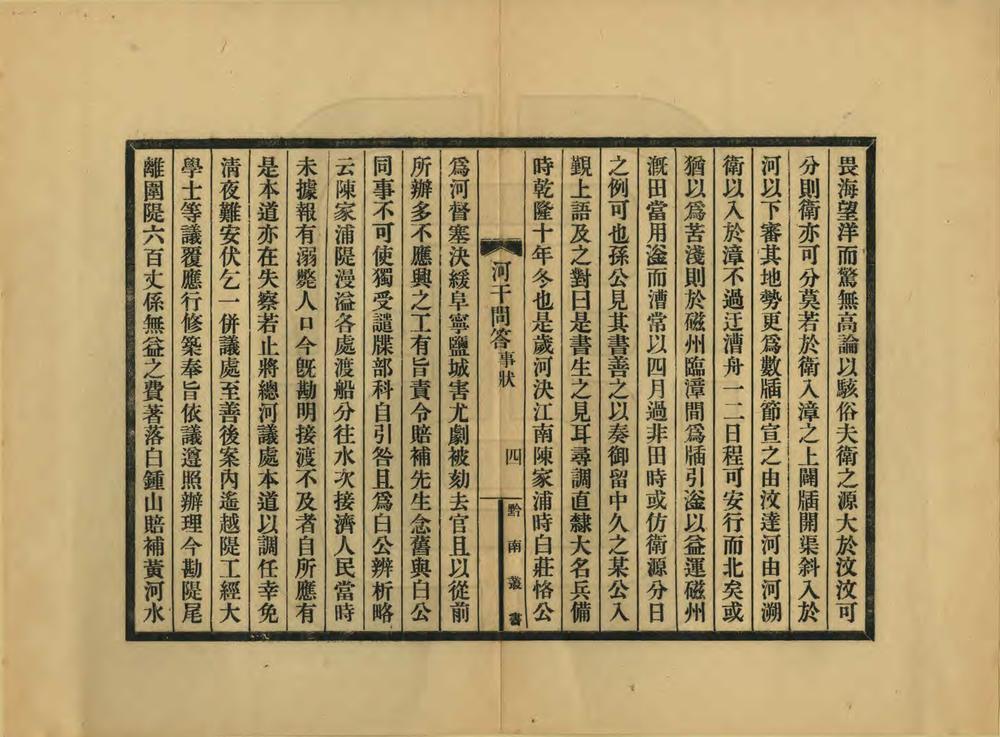 畏海望洋而驚無高論以駭俗夫衛之源大於汶汶可
分則衛亦可分莫若於衛入漳之上闢牐開渠斜入於
河以下審其地勢更爲數牐節宣之由汶達河由河溯
衛以入於漳不過迂漕舟一二日程可安行而北矣或
猶以爲苦淺則於磁州臨漳間爲牐引滏以益運磁州
漑田當用滏而漕常以四月過非田時或仿衛源分日
之例可也孫公見其書善之以奏御留中久之某公入
覲上語及之對曰是書生之見耳尋調直隸大名兵備
時乾隆十年冬也是歲河決江南陳家浦時白莊恪公
河干問答 事狀 四 黔南叢書
爲河督塞決緩阜寧鹽城害尤劇被劾去官且以從前
所辦多不應興之工有旨責令賠補先生念舊與白公
同事不可使獨受譴牒部科自引咎且爲白公辨析略
云陳家浦隄漫溢各處渡船分往水次接濟人民當時
未據報有溺斃人口今旣勘明接渡不及者自所應有
是本道亦在失察若止將總河議處本道以調任幸免
淸夜難安伏乞一併議處至善後案內遙越隄工經大
學士等議覆應行修築奉旨依議遵照辦理今勘隄尾
離圍隄六百丈係無益之費著落白鍾山賠補黃河水